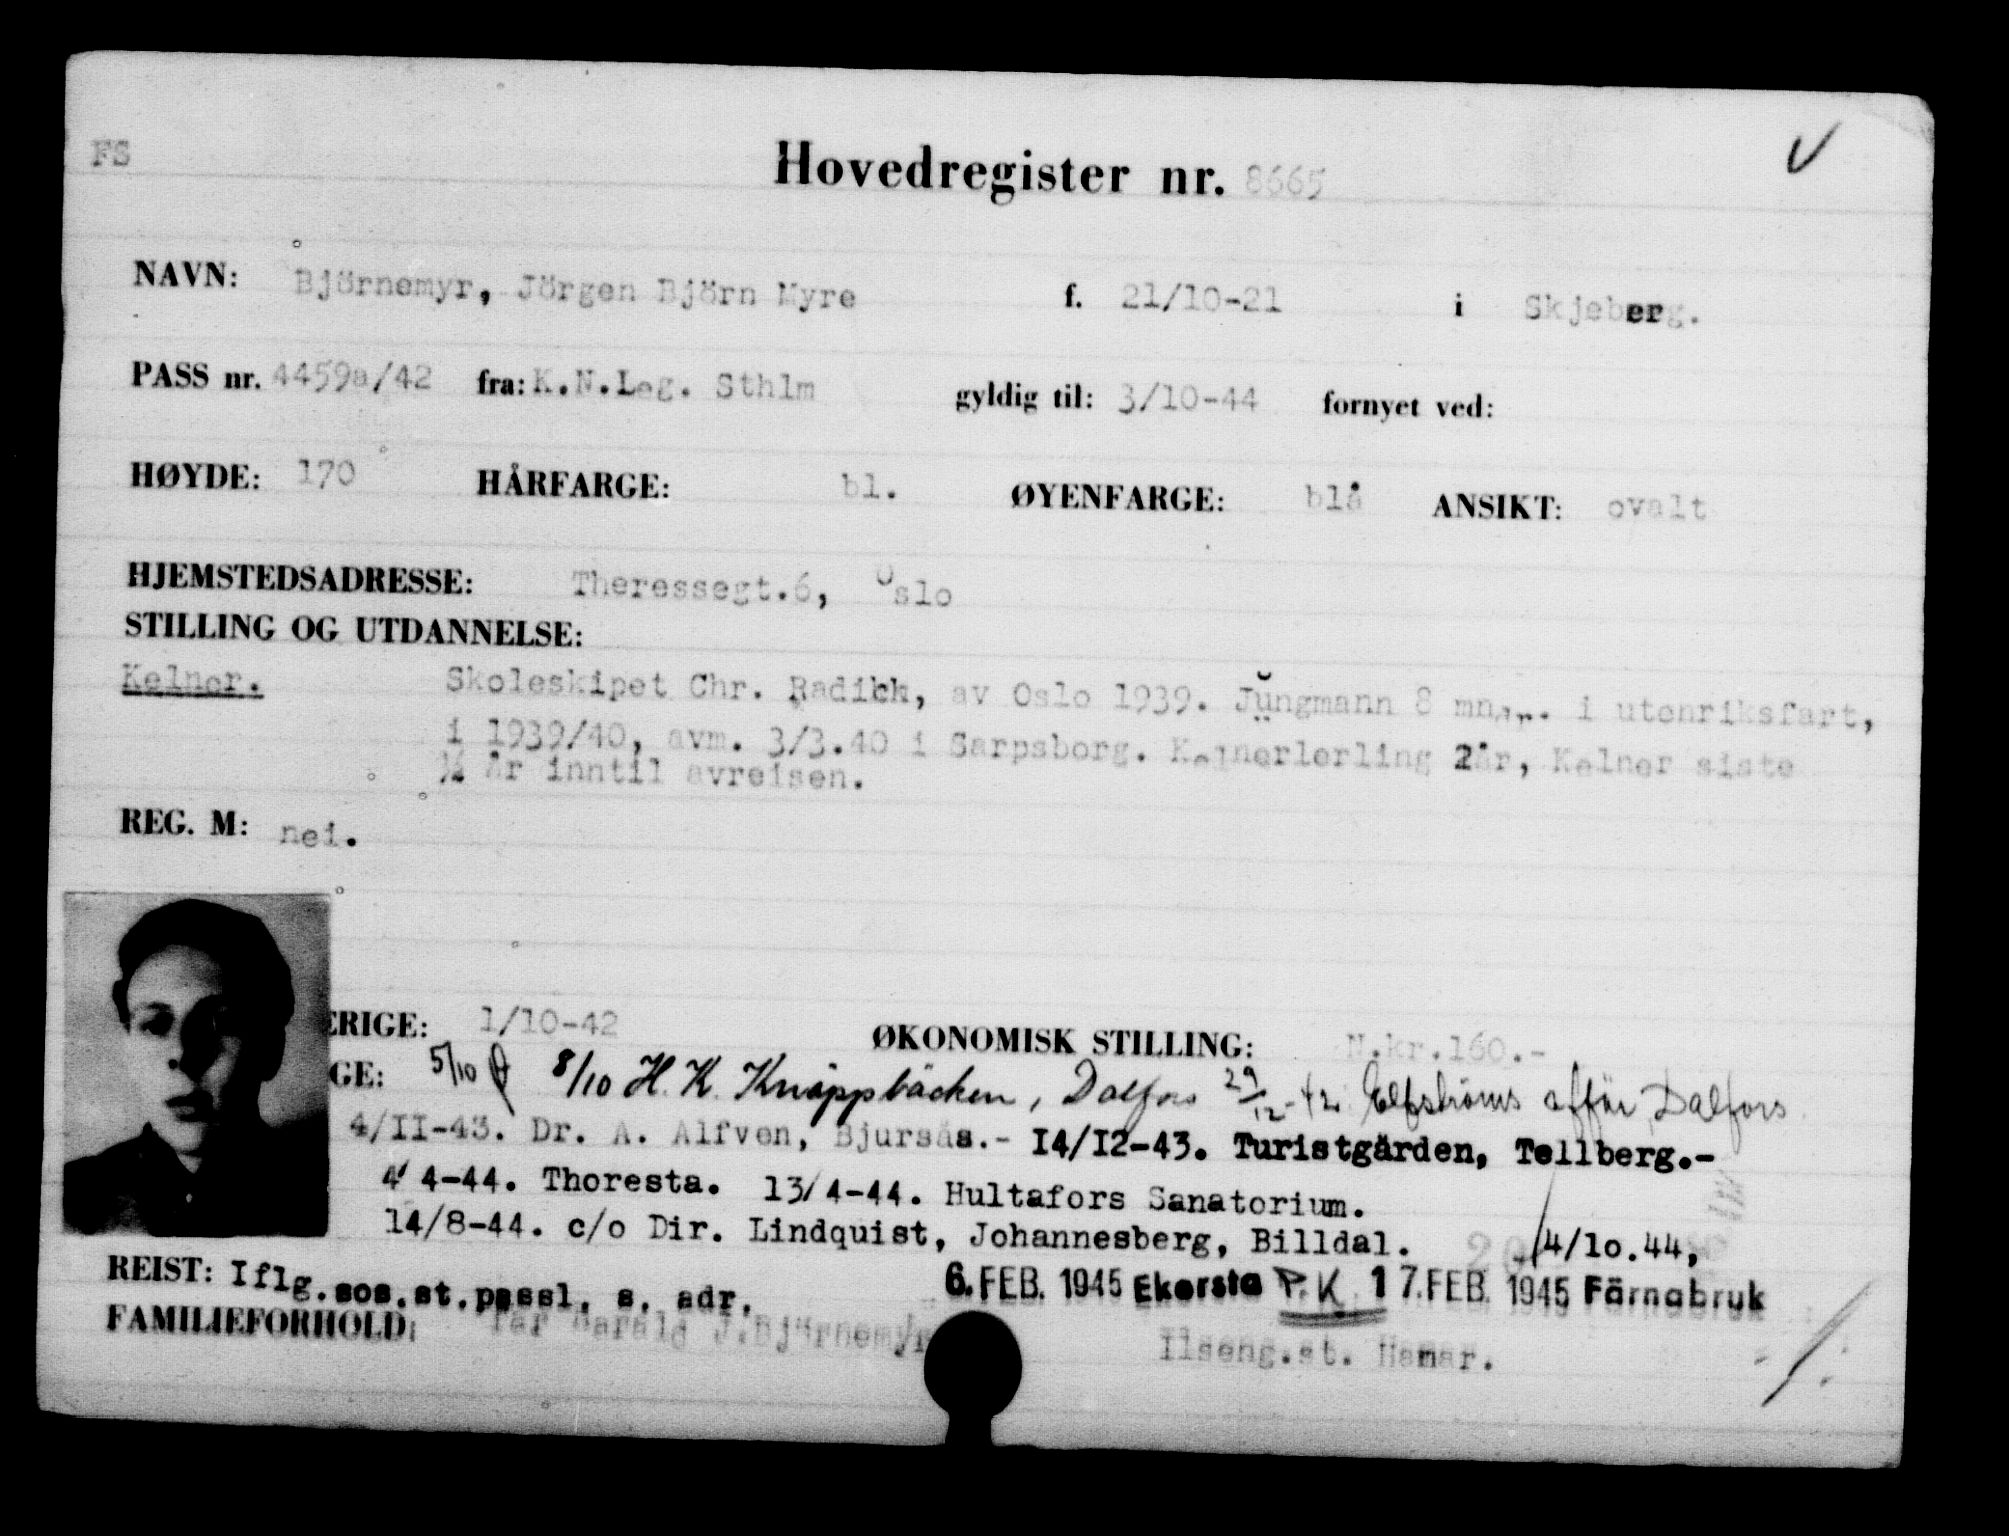 FS
Hovedregister nr. 8665
NAVN: Björnemyr, Jörgen Björn Myre f. 21/10-21 i Skjeberg.
PASS nr. 4459a/42 fra: K.N.Leg. Sthlm gyldig til: 3/10-44 fornyet ved:
HØYDE: 170 HÅRFARGE: bl. ØYENFARGE: blå ANSIKT: ovalt
HJEMSTEDSADRESSE: Theressegt.6, Oslo
STILLING OG UTDANNELSE:
Kelner. Skoleskipet Chr. Radich, av Oslo 1939. Jungmann 8 mnr. i utenriksfart,
i 1939/40, avm. 3/3.40 i Sarpsborg. Kelnerlerling 2år, Kelner siste
½ år inntil avreisen.
REG. M: nei.
ERIGE: 1/10-42 ØKONOMISK STILLING: N.kr.160.-
GE: 5/10 8/10 H. K. Knäppbäcken, Dalfors 29/12-42 Elfströms affär, Dalfors
4/II-43. Dr. A. Alfven, Bjursås.- I4/I2-43. Turistgården, Tellberg.-
4/4-44. Thoresta. 13/4-44. Hultafors Sanatorium.
14/8-44. c/o Dir. Lindquist, Johannesberg, Billdal. 4/1o.44,
REIST: Iflg.sos.st.passl. s. adr. 6. FEB. 1945 Ekersta P.K. 17. FEB. 1945 Färnabruk
FAMILIEFORHOLD: Far Harald J.Björnemyr Ilseng.st. Hamar.